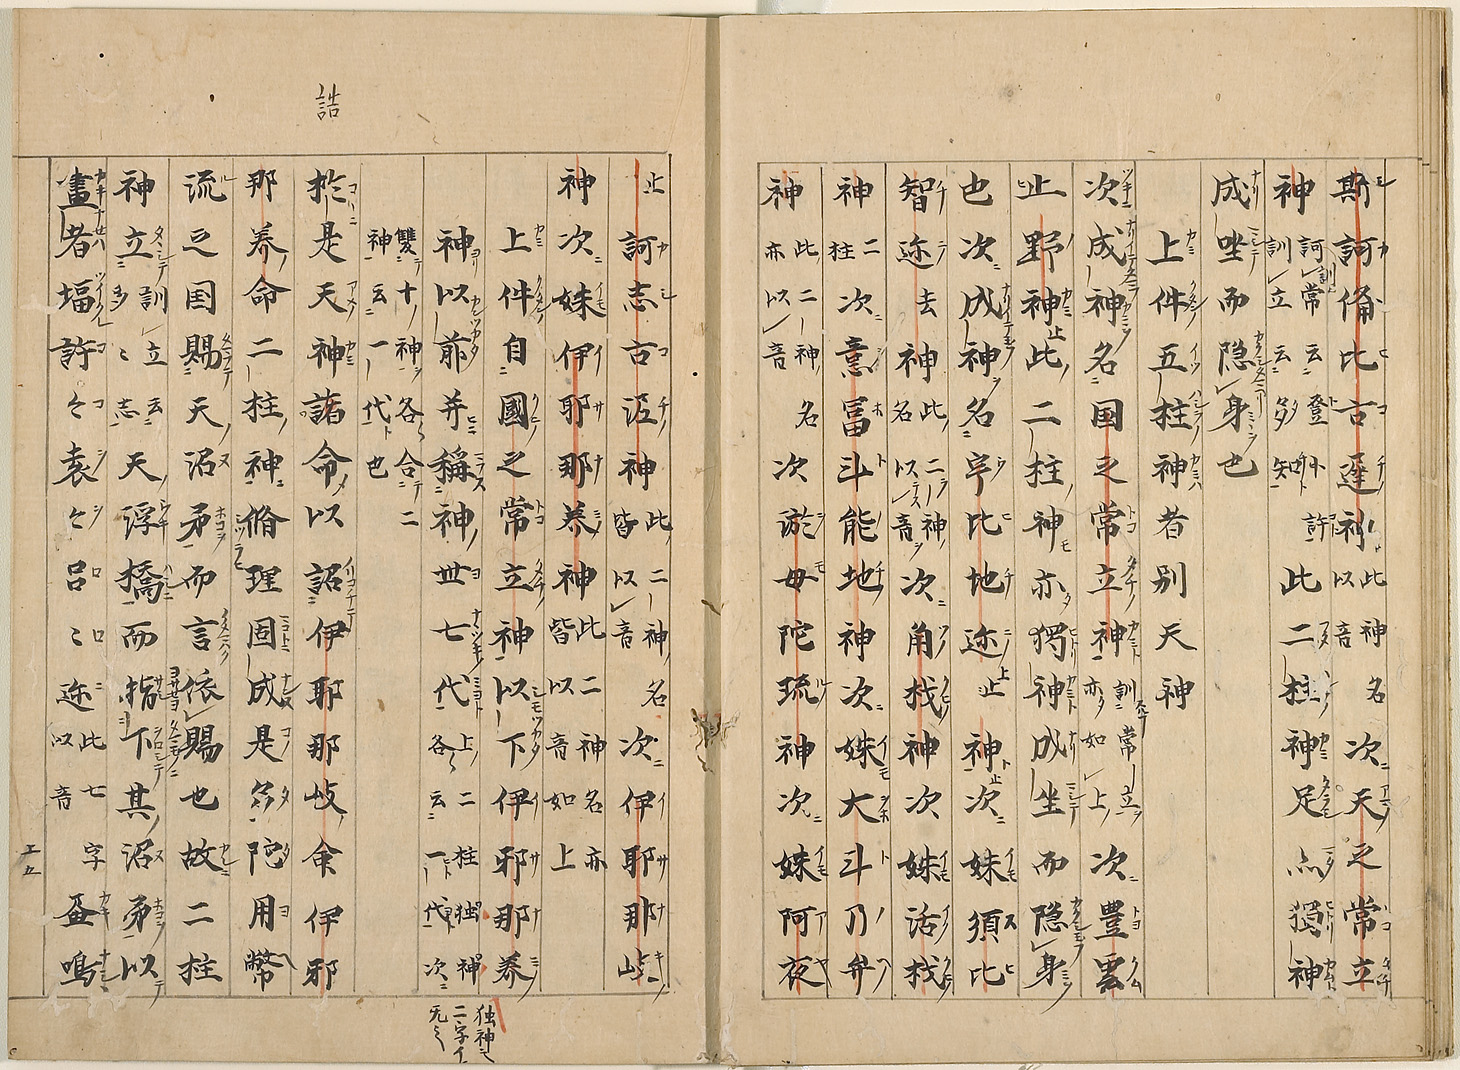 斯訶備比古遅神此神名以音次天之常立
神訶訓常云登許訓立云多知此二柱神足亦獨神
成唑而隠身也
上件五柱神者別天神
次成神名国之常立神訓常立亦如上次豊雲
上野神此二柱神亦獨神成坐而隠身
也次成神名宇比地迩上神次妹須比
智迩去神名此二神名以音次角杙神次妹活杙
神二柱次意冨斗能地神次妹大斗乃弁
神此二神名亦以音次淤母陀琉神次妹阿夜
上訶志古泥神此二神名皆以音次伊耶那岐
神次妹伊耶那美神此二神名亦皆以音如上
上件自國之常立神以下伊邪那美
神以前并稱神世七代上二柱独神各云一代次
雙十神各合二神云一代也
於是天神諸命以詔伊耶那岐命伊邪
那美命二柱神脩理固成是多陀用幣
流之国賜天沼矛而言依賜也故二柱
神立訓立云多々志天浮橋而指下其沼矛以
畫者塩許々袁々呂々迩此七字以音畫鳴
誥
独神之二字イ无之